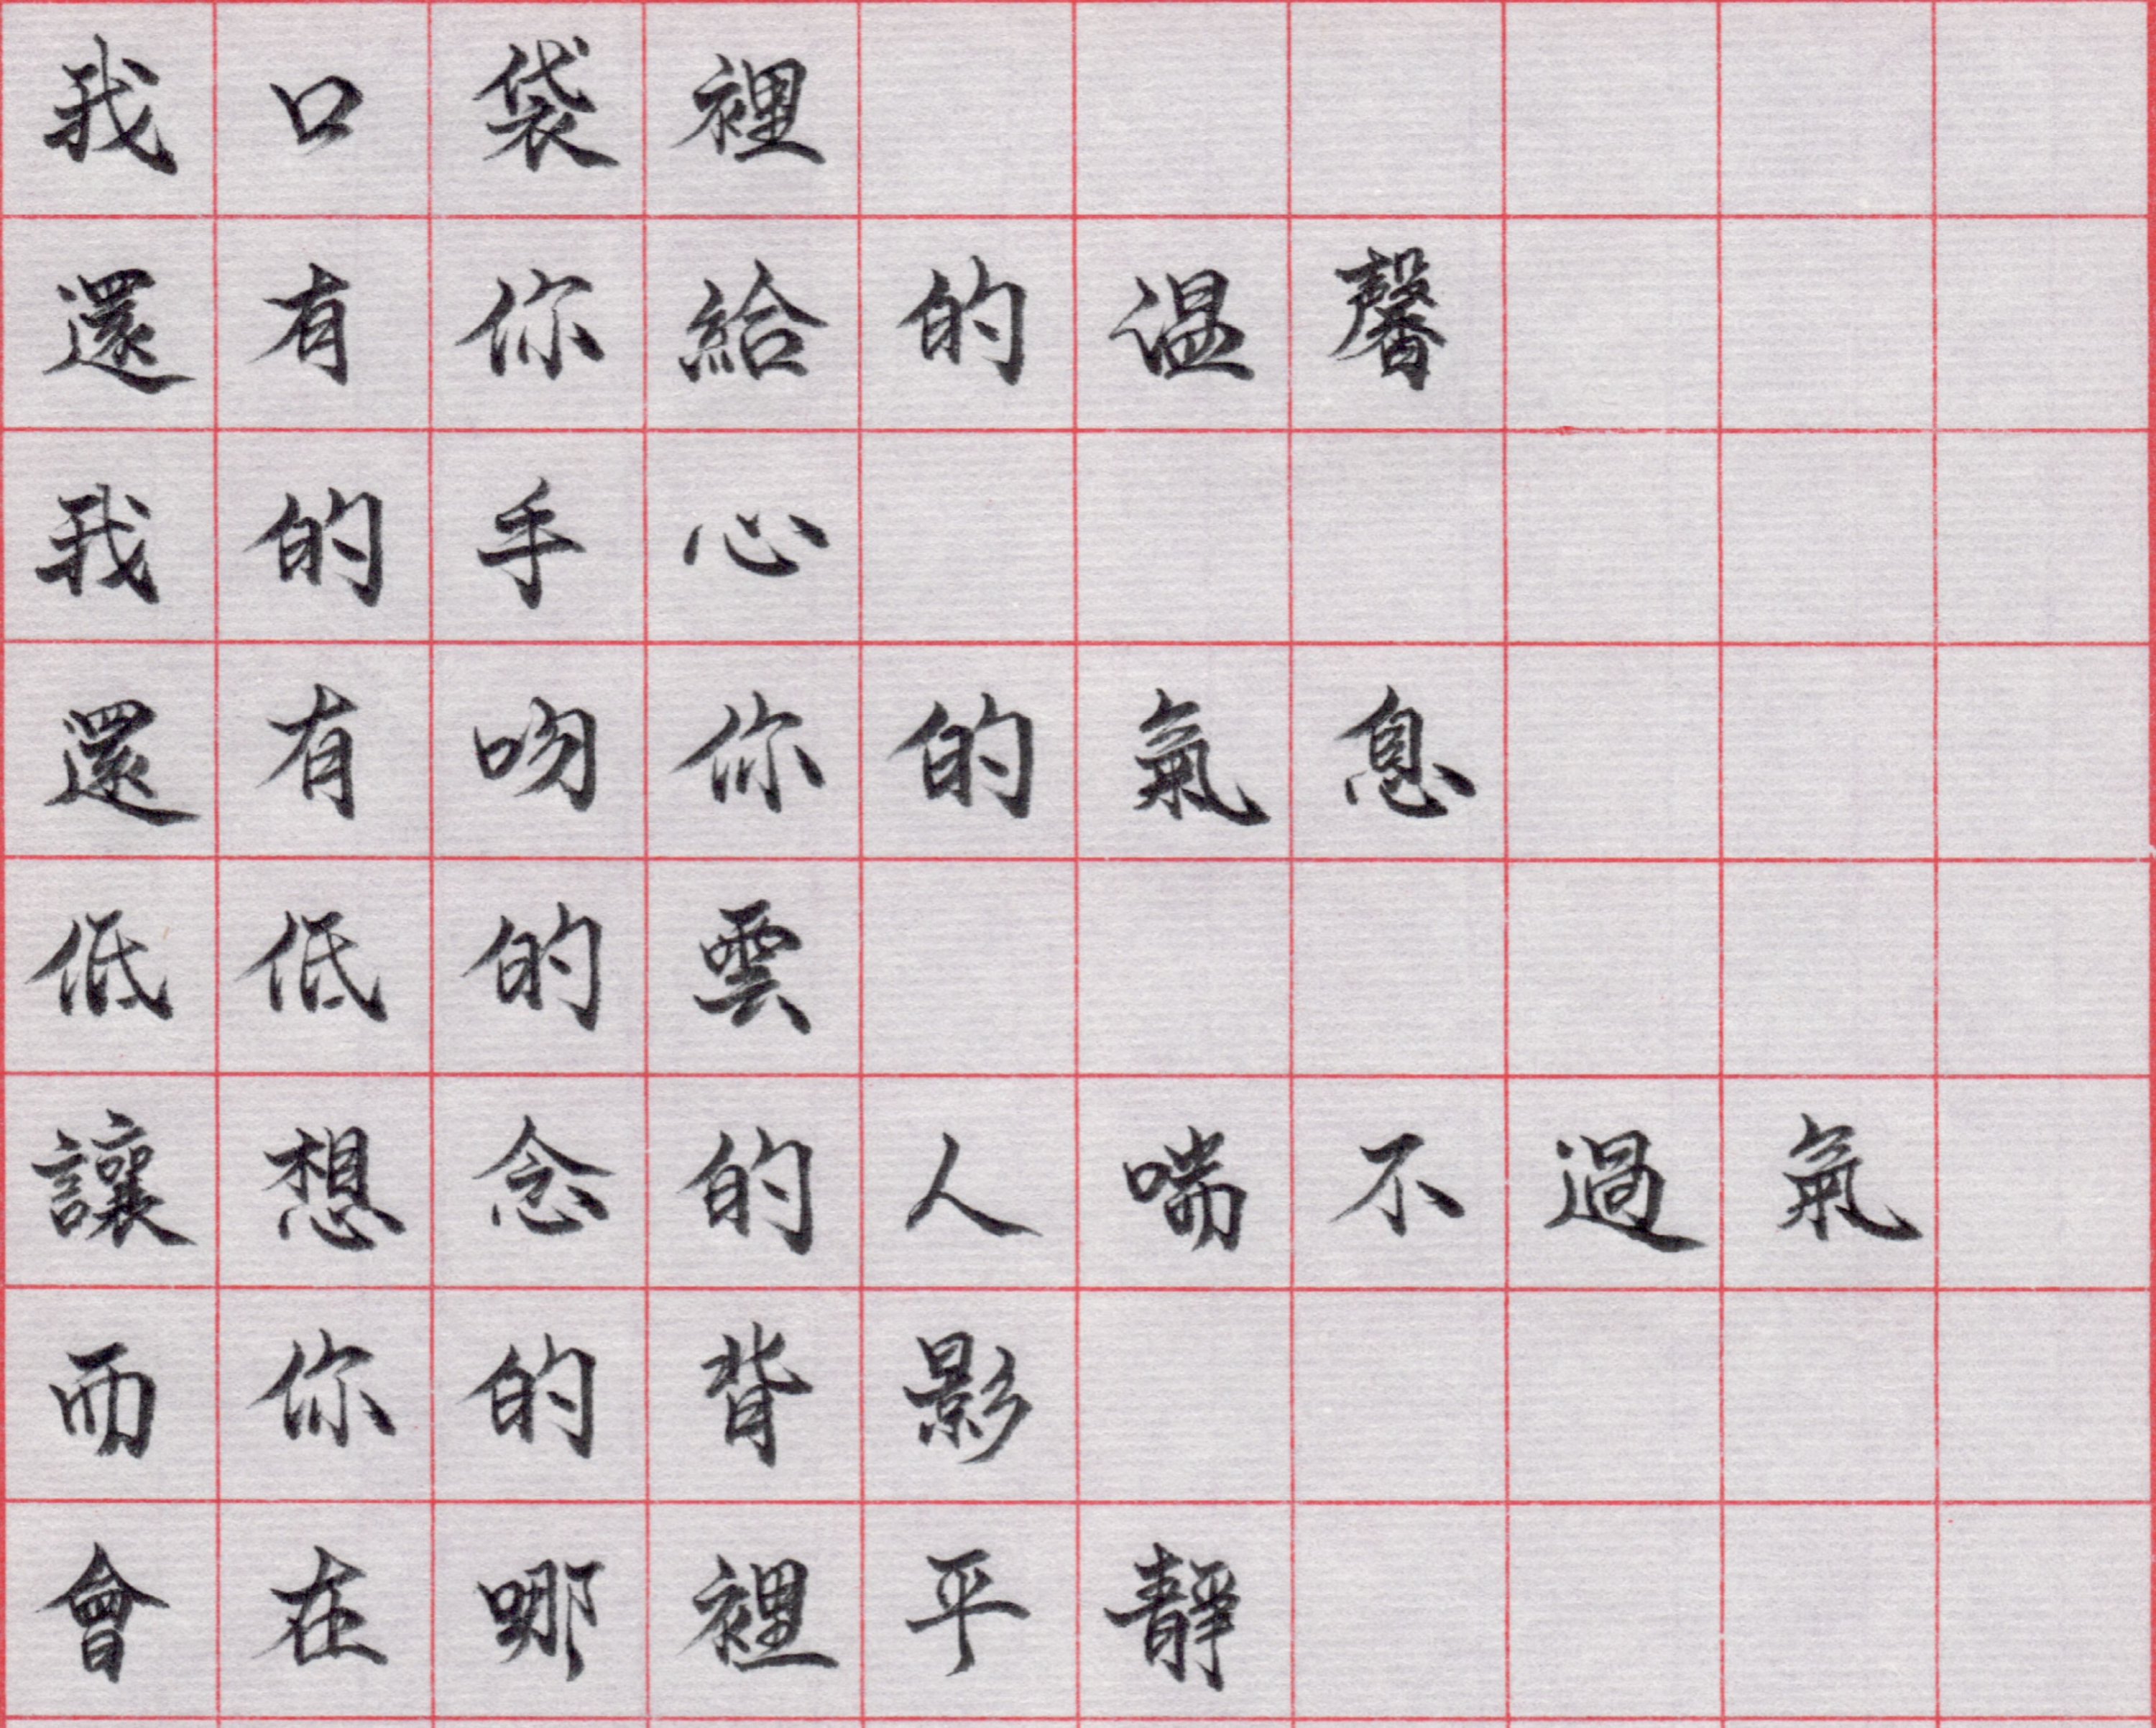 我口袋裡
還有你給的溫馨
我的手心
還有吻你的氣息
低低的雲
讓想念的人喘不過氣
而你的背影
會在哪裡平靜